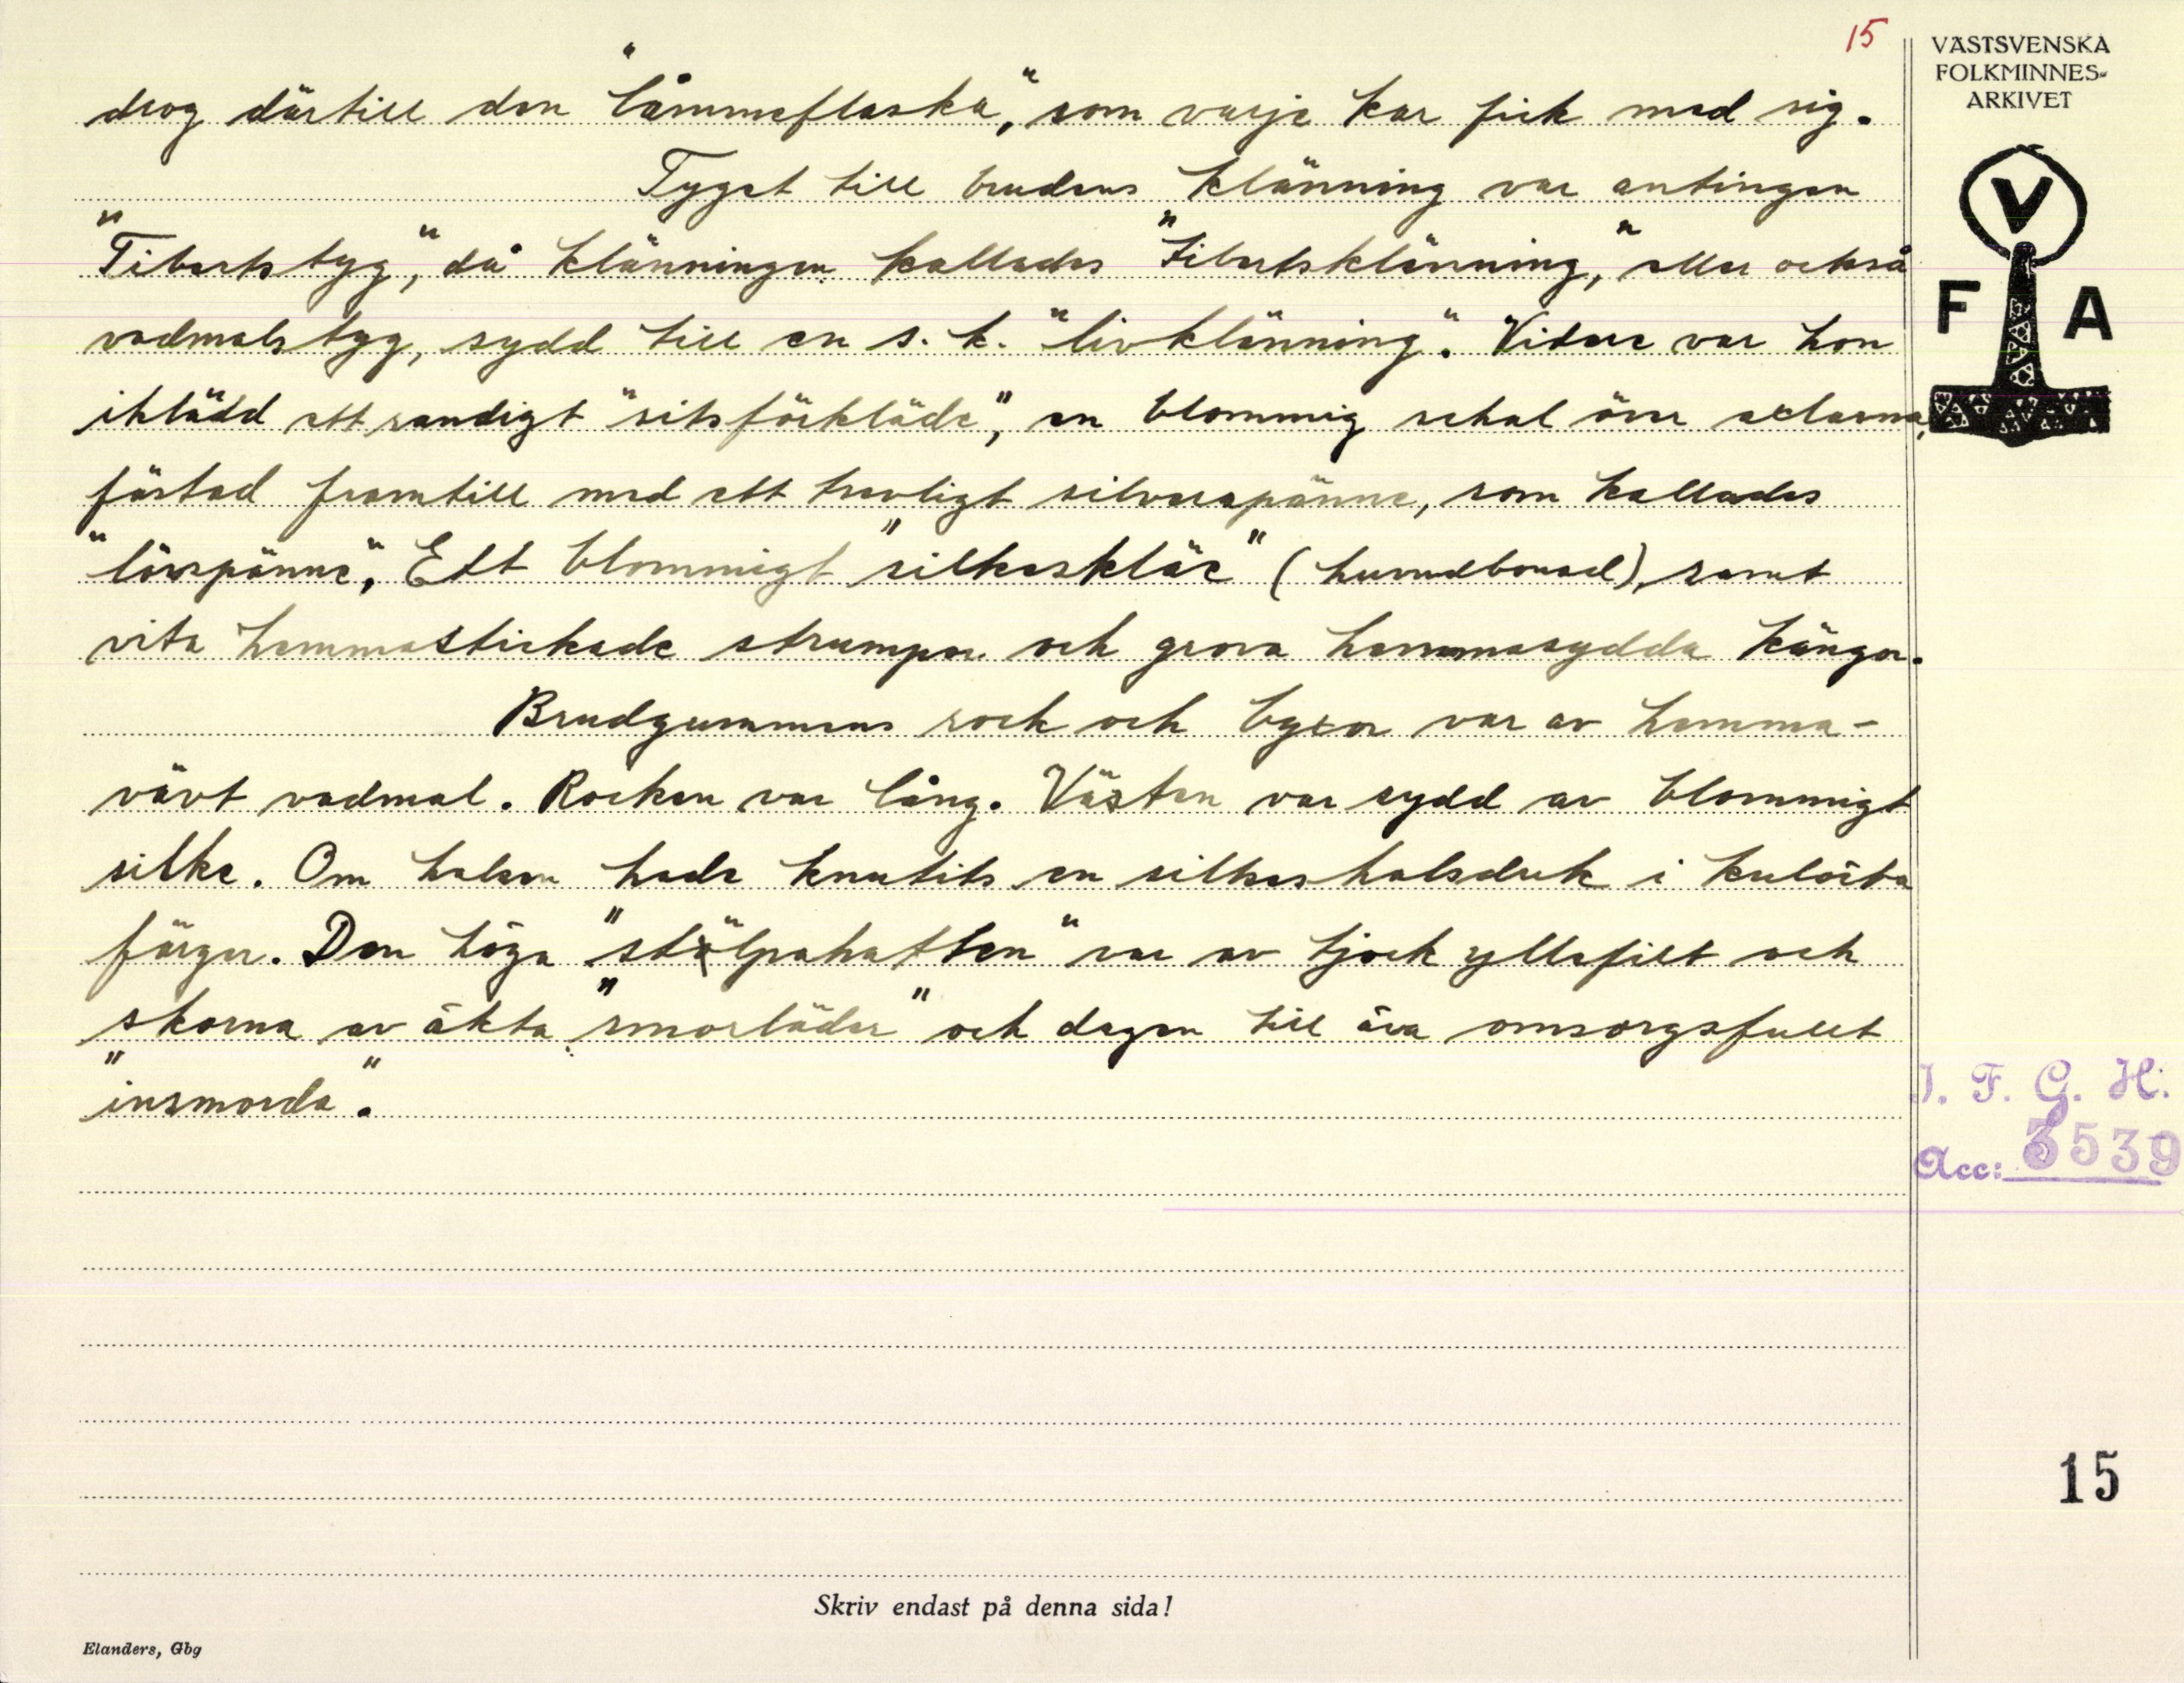 15
VÄSTSVENSKA
FOLKMINNES-
ARKIVET
V
F A
drog därtill den "låmmeflaska", som varje kar fick med sig.
Tyget till brudens klänning var antingen
"Tibertstyg", då klänningen kallades "tibetsklänning", eller också
vadmalstyg, sydd till en s. k. "livklänning". Vidare var hon
iklädd ett randigt "sitsförkläde", en blommig schal över axlarna,
fästad framtill med ett trevligt silverspänne, som kallades
"lövspänne", Ett blommigt "silkeskläe" (huvudbonad), samt
vita hemmastickade strumpor och grova hemmasydda kängor.
Brudgummens rock och byxor var av hemma-
vävt vadmal. Rocken var lång. Västen var sydd av blommigt
silke. Om halsen hade knutits en silkeshalsduk i kulörta
färger. Den höga "stölpahatten" var av tjock yllefilt och
skorna av äkta "smorläder" och dagen till ära omsorgsfullt
"insmorda".
I. F. G. H.
Acc: 3539
15
Skriv endast på denna sida!
Elanders, Gbg